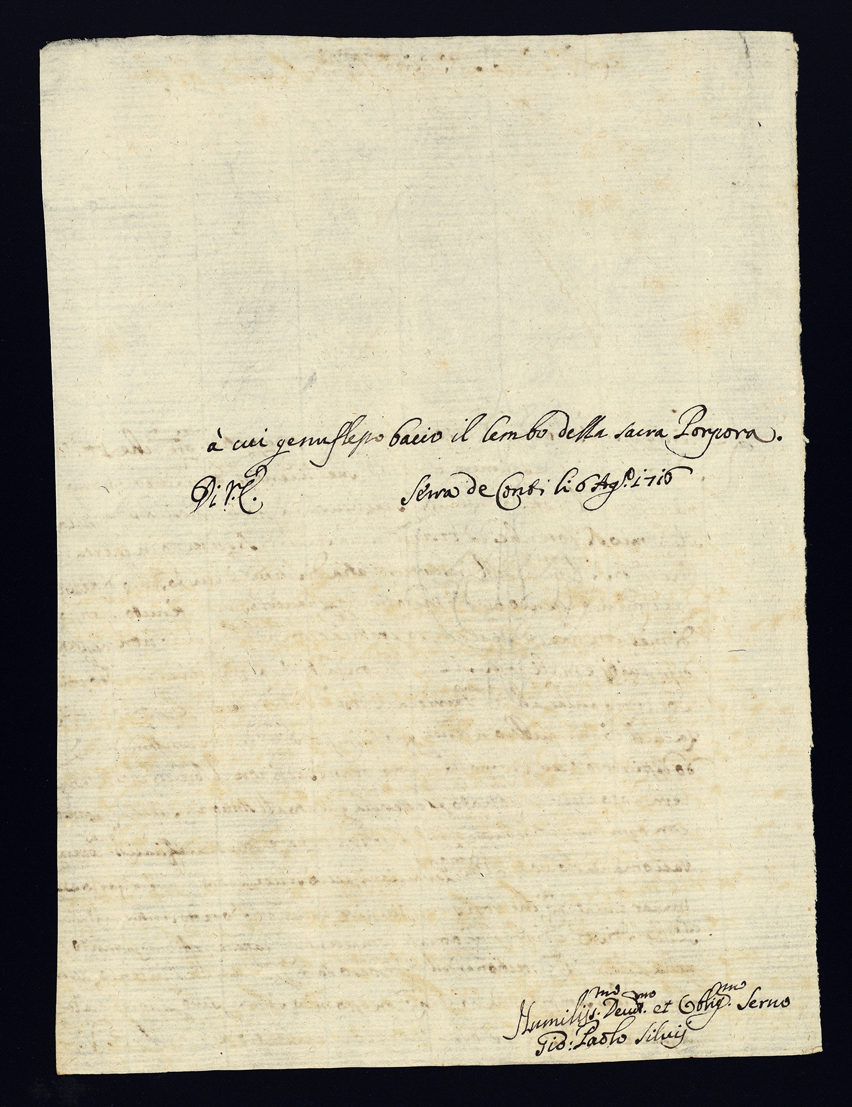 à cui genuflesso bacio il lembo della sacra Porpora.
Di V. E. Serra de Conti li 6 Ag.º 1716
Humiliss.mo Deuot.mo et Oblig.mo Seruo
Gio: Paolo Siluij